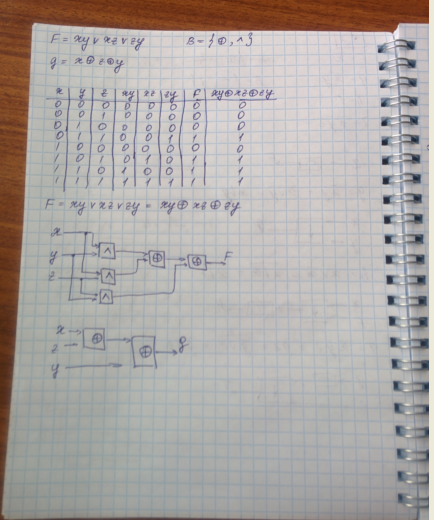 F = xy v xz v zy B = {⊕, ∧}
g = x⊕z⊕y
x y z xy xz zy F xy⊕xz⊕zy
0 0 0 0 0 0 0 0
0 0 1 0 0 0 0 0
0 1 0 0 0 0 0 0
0 1 1 0 0 1 1 1
1 0 0 0 0 0 0 0
1 0 1 0 1 0 1 1
1 1 0 1 0 0 1 1
1 1 1 1 1 1 1 1
F = xy v xz v zy = xy⊕xz⊕zy
x
y
z
∧
∧
∧
⊕
⊕
F
x
z
y
⊕
⊕
g